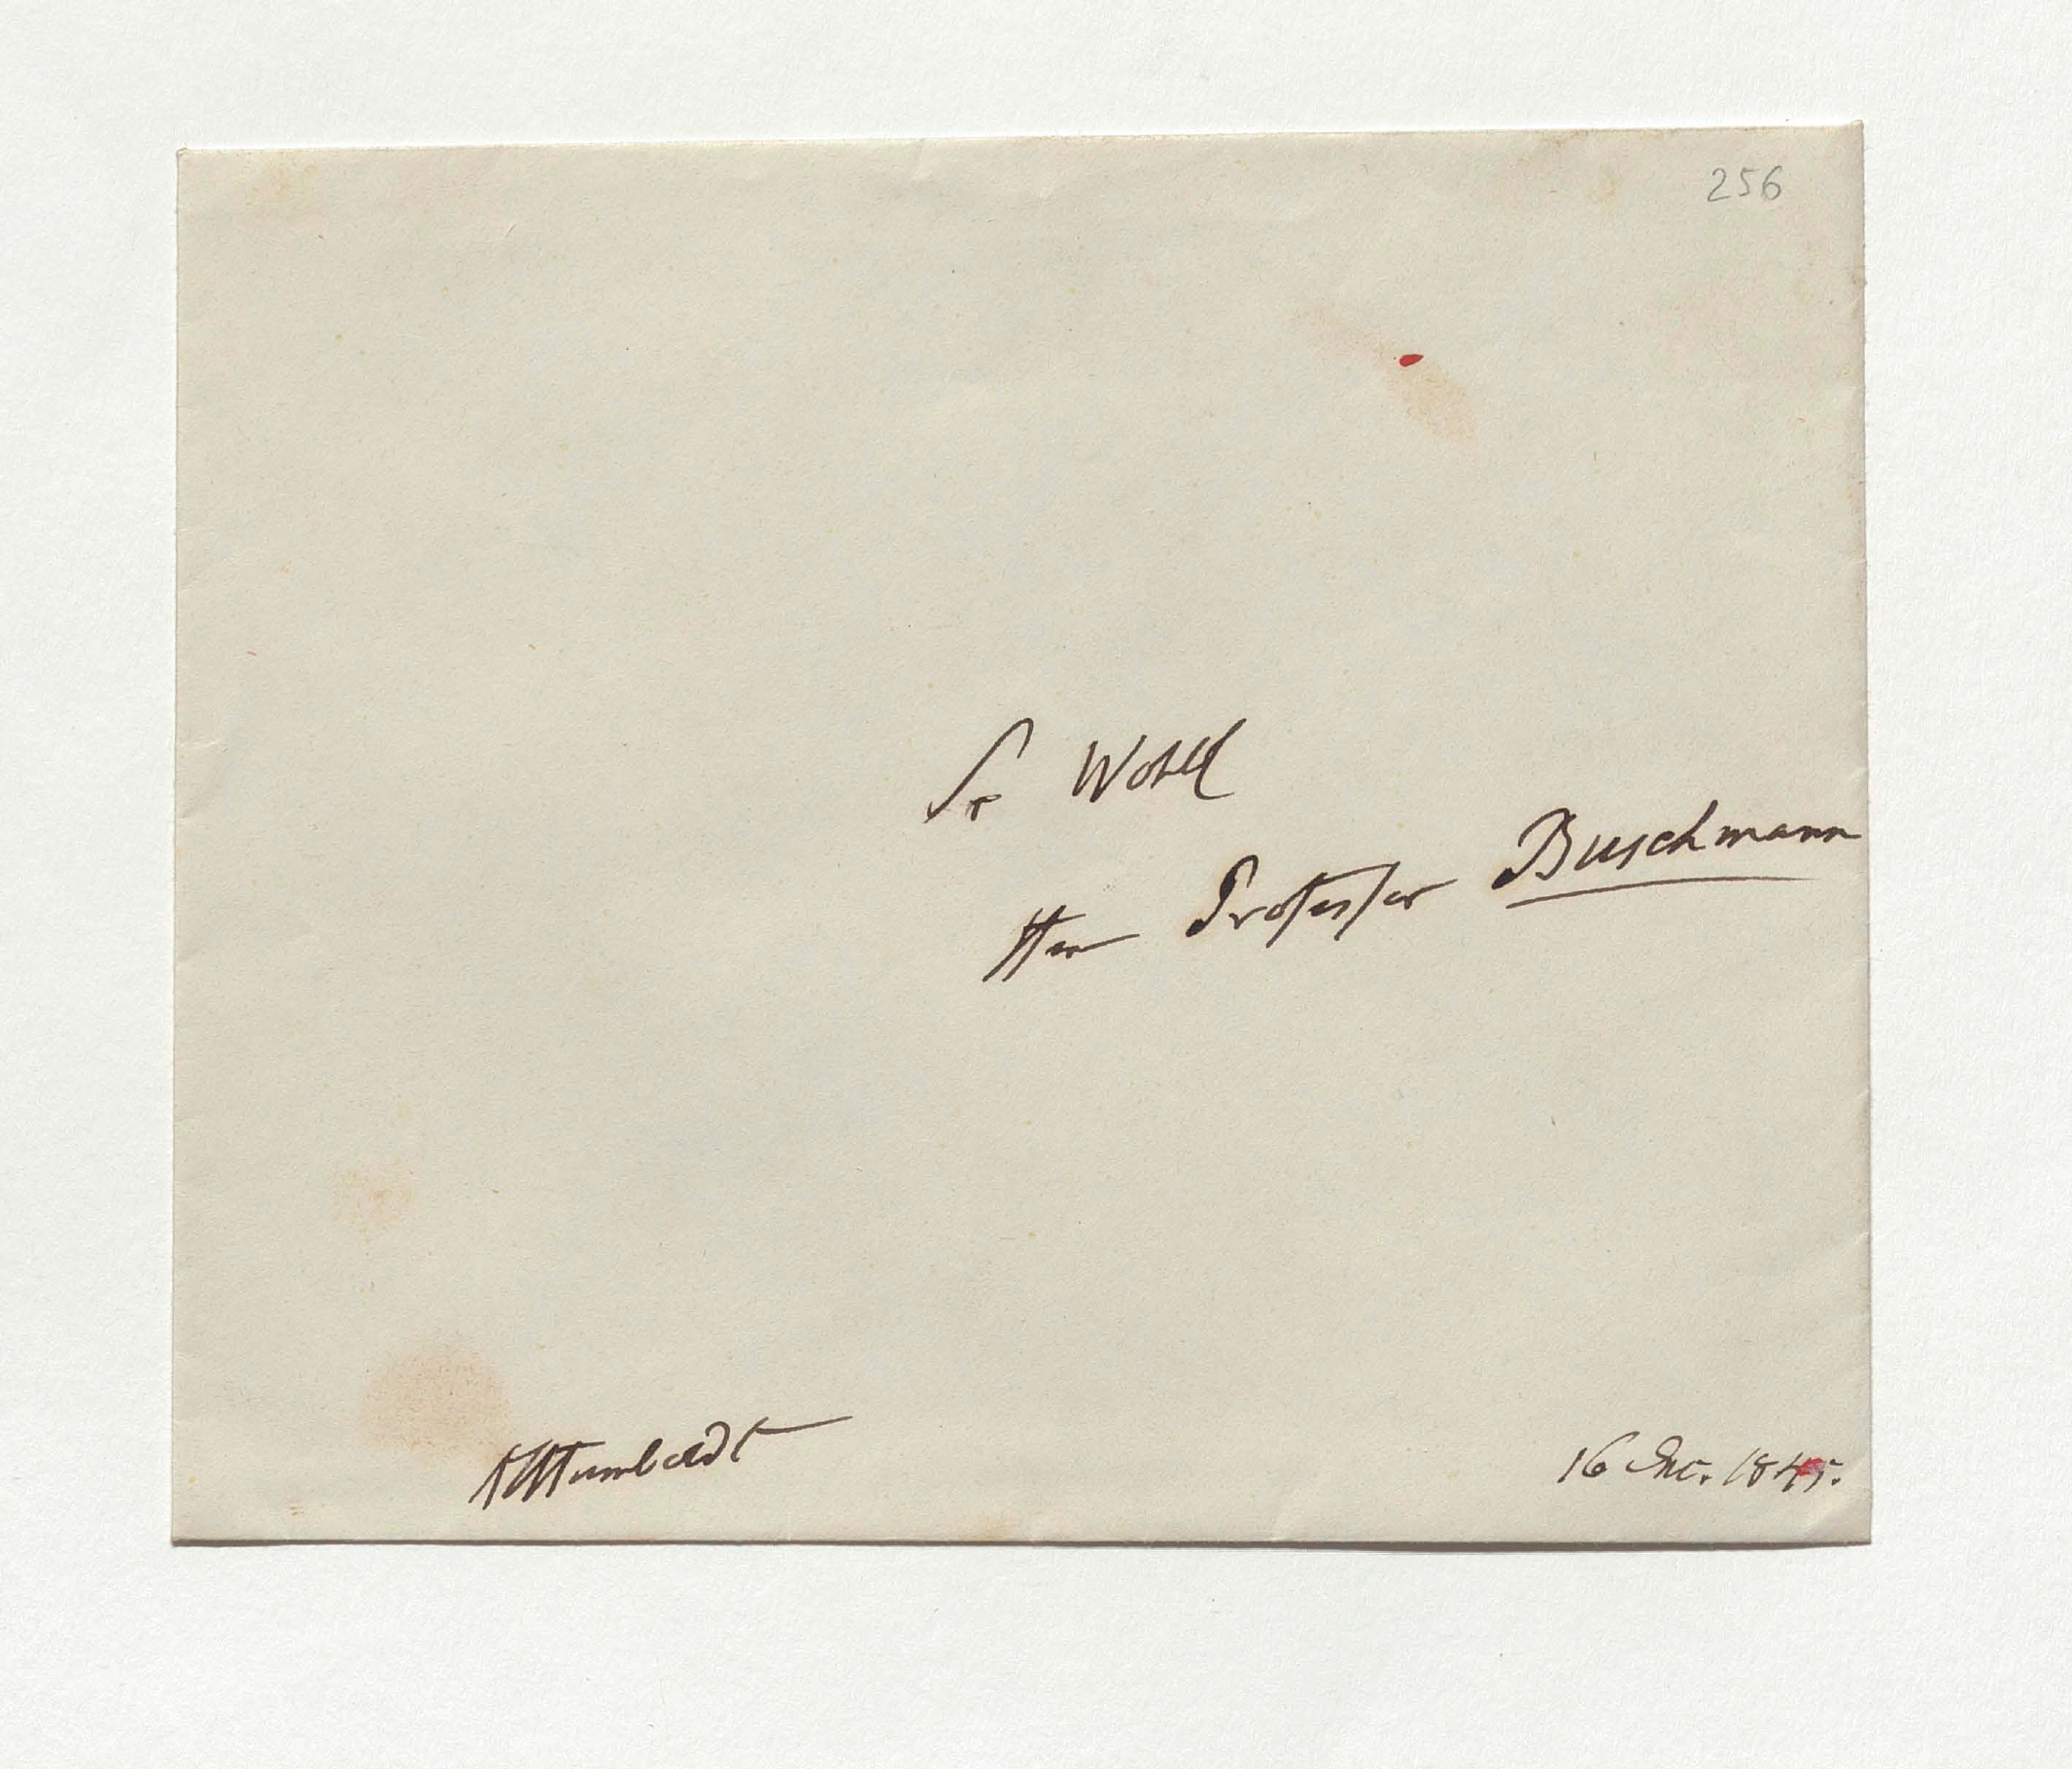 256
Sr Wohll
Herr Professor Buschmann
AvHumboldt
16 Dec. 1845.